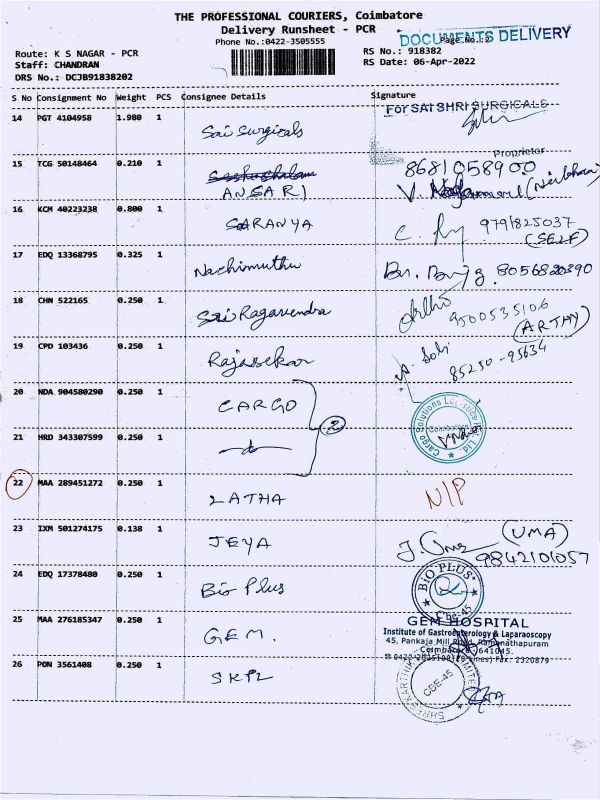 THE PROFESSIONAL COURIERS, Coimbatore
Delivery Runsheet - PCR
Phone No.:0422-3505555
Page No.:2
DOCUMENTS DELIVERY
Route: K S NAGAR - PCR
RS No.: 918382
Staff: CHANDRAN
RS Date: 06-Apr-2022
DRS No.: DCJB91838202
S No Consignment No Weight PCS Consignee Details Signature
14 PGT 4104958 1.980 1 Sai Surgicals For SAI SHRI SURGICALS
Proprietor
15 TCG 50148464 0.210 1 ANSARI 8681058900
16 KCM 40223238 0.800 1 SARANYA 9791825037
(SELF)
17 EDQ 13368795 0.325 1 Nachimuthu 8056820390
18 CHN 522165 0.250 1 Sri Ragavendra 9500535106
(ARTHY)
19 CPD 103436 0.250 1 Rajasekar 85250-95634
20 NDA 904580290 0.250 1 CARGO Cargo Solutions Logistics Pvt. Ltd. Coimbatore
2
21 HRD 343307599 0.250 1
22 MAA 289451272 0.250 1 LATHA N/P
23 IXM 501274175 0.138 1 JEYA (UMA)
9842101057
24 EDQ 17378480 0.250 1 Bio Plus BIO PLUS CBE-45
25 MAA 276185347 0.250 1 GEM. GEM HOSPITAL
Institute of Gastroenterology & Laparaoscopy
45, Pankaja Mill Road, Ramanathapuram
Coimbatore, 641045.
Fax: 2320879
26 PON 3561408 0.250 1 SKPL CBE-45